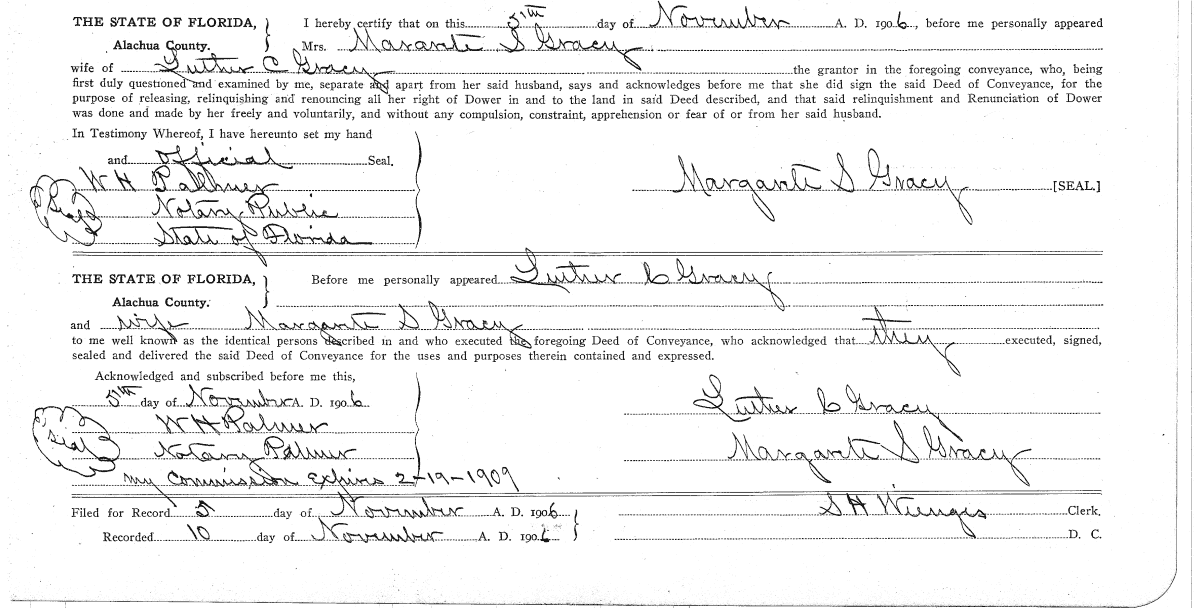 THE STATE OF FLORIDA, I hereby certify that on this 5th day of November A. D. 1906, before me personally appeared
Alachua County. Mrs. Mararite S Gracy
wife of Luther C Gracy the grantor in the foregoing conveyance, who, being
first duly questioned and examined by me, separate and apart from her said husband, says and acknowledges before me that she did sign the said Deed of Conveyance, for the
purpose of releasing, relinquishing and renouncing all her right of Dower in and to the land in said Deed described, and that said relinquishment and Renunciation of Dower
was done and made by her freely and voluntarily, and without any compulsion, constraint, apprehension or fear of or from her said husband.
In Testimony Whereof, I have hereunto set my hand
and official Seal.
W H Palhmer
Margarite S Gracy [SEAL.]
Seal
Notary Public
State of Florida
THE STATE OF FLORIDA, Before me personally appeared Luther C Gracy
Alachua County.
and wife Margarite S Gracy
to me well known as the identical persons described in and who executed the foregoing Deed of Conveyance, who acknowledged that they executed, signed,
sealed and delivered the said Deed of Conveyance for the uses and purposes therein contained and expressed.
Acknowledged and subscribed before me this,
5th day of November A. D. 1906
Luther C Gracy
W H Palmer
Seal
Notary Palmer
Margarite S Gracy
my Commission Expires 2-19-1909
Filed for Record 5 day of November A. D. 1906 S H Wienges Clerk.
Recorded 10 day of November A. D. 1906 D. C.